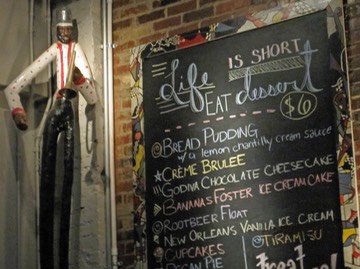 Life IS SHORT
EAT dessert
$6
BREAD PUDDING
w/a lemon chantilly cream sauce
CRÈME BRULEE
GODIVA CHOCOLATE CHEESECAKE
BANANAS FOSTER ICE CREAM CAKE
ROOTBEER FLOAT
NEW ORLEANS VANILLA ICE CREAM
CUPCAKES @TIRAMISU
PECAN PIE